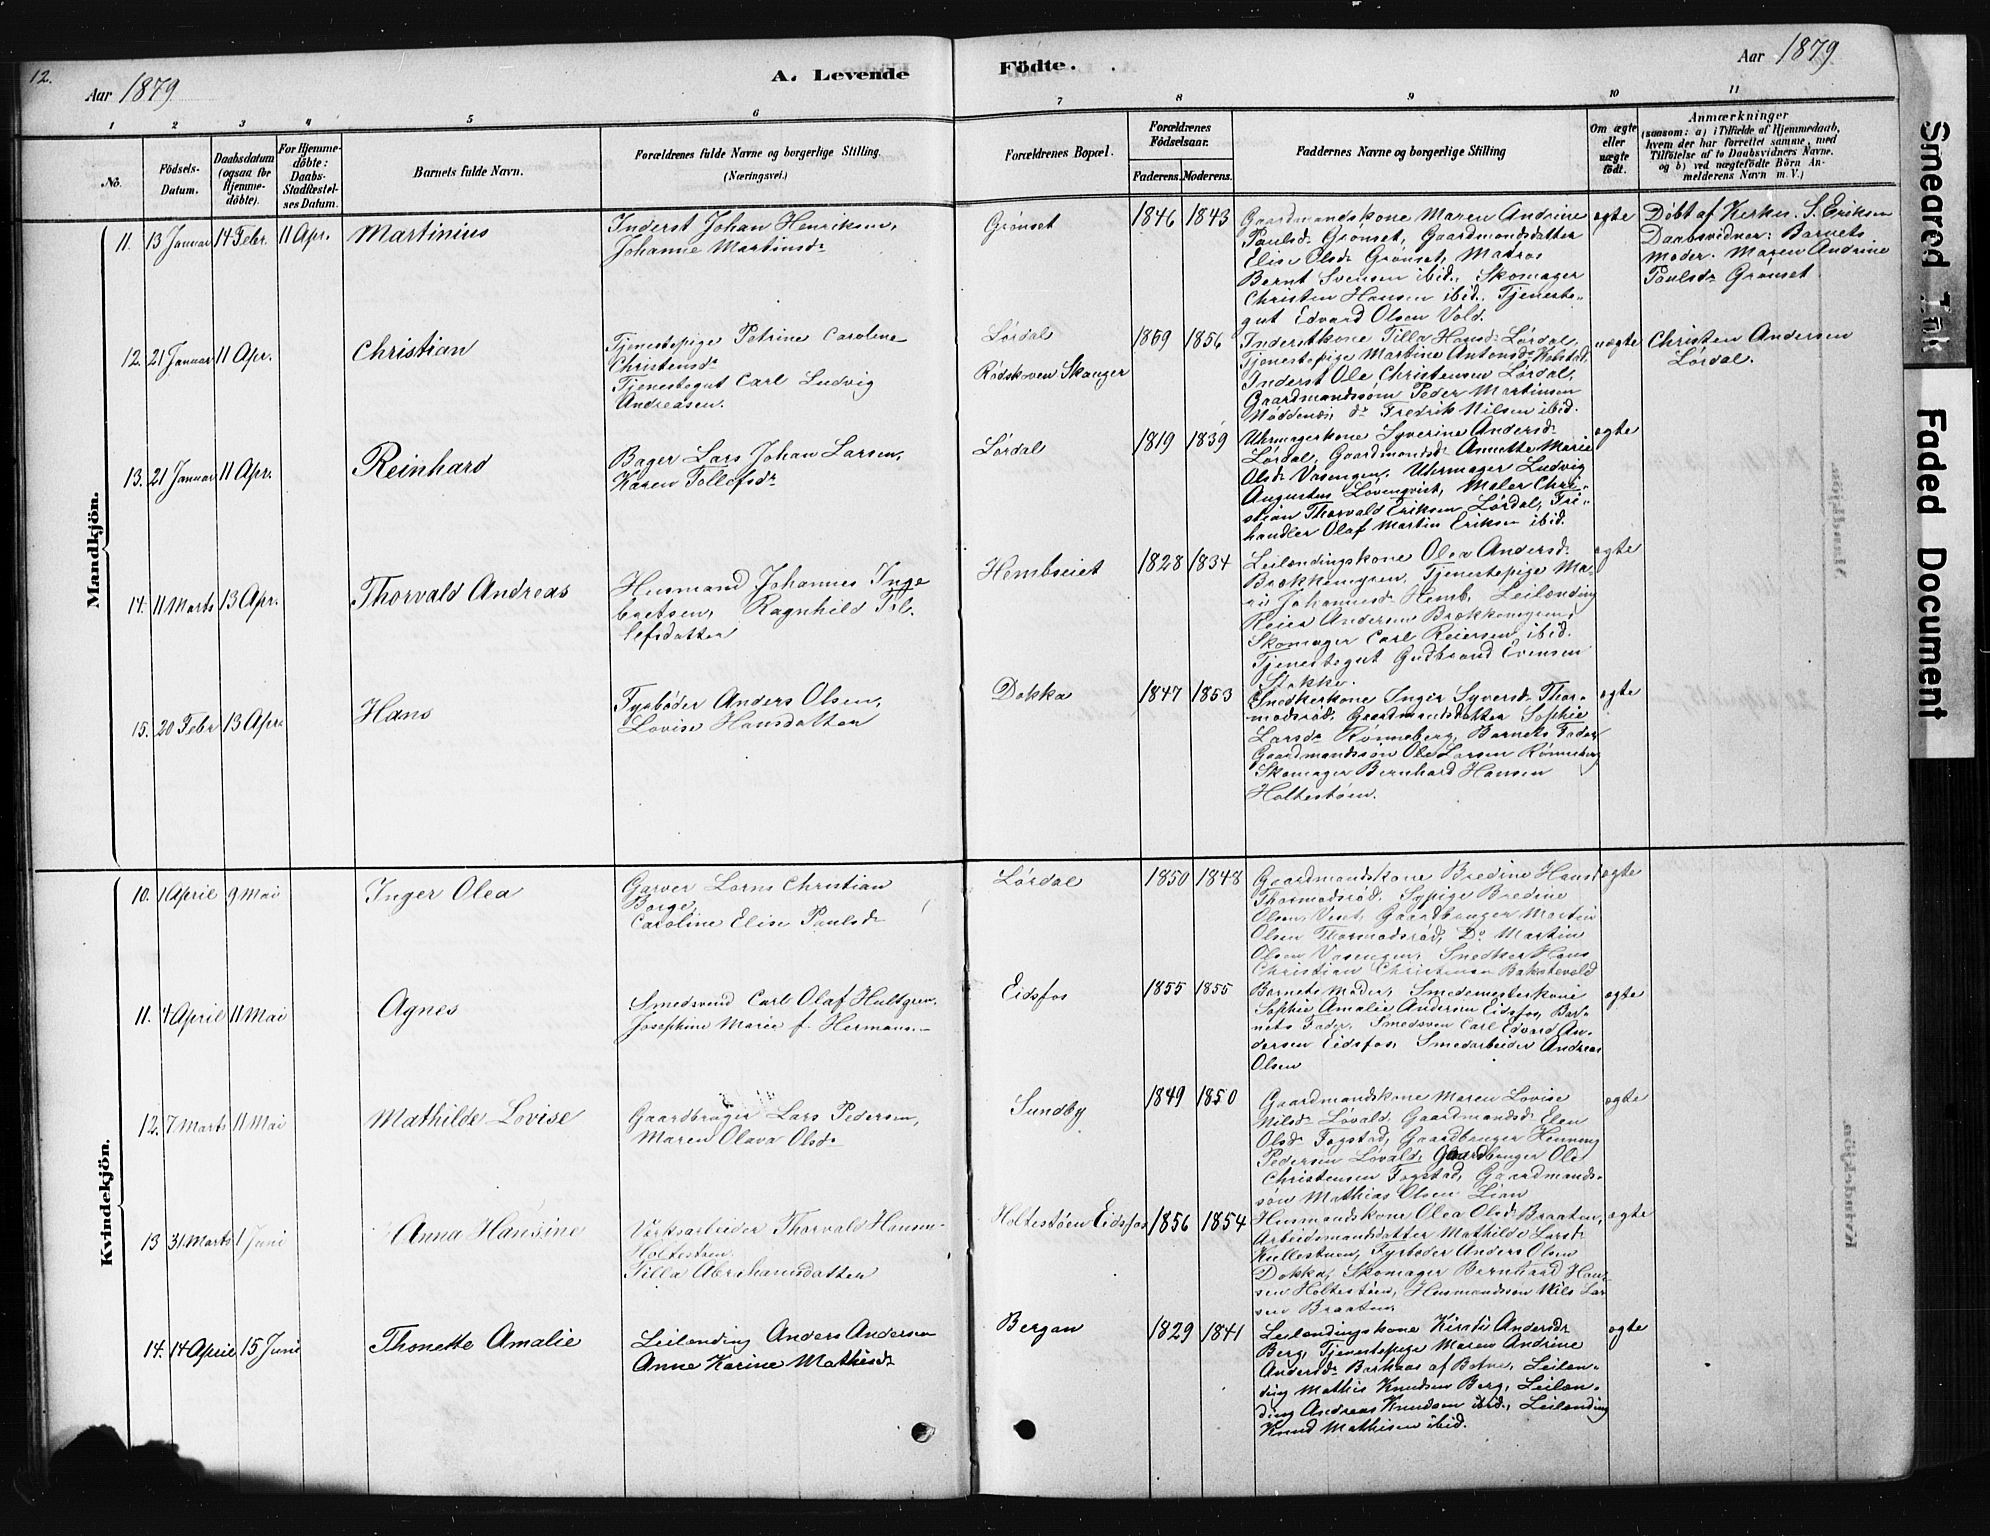 12.
Aar 1879
A. Levende
Födte.
Aar 1879
1 2 3 4 5 6 7 8 9 10 11
No.
Födsels-
Datum.
Daabsdatum
(ogsaa for
Hjemme-
döbte).
For Hjemme-
döbte:
Daabs-
Stadfæstel-
ses Datum.
Barnets fulde Navn.
Forældrenes fulde Navne og borgerlige Stilling.
(Næringsvei.)
Forældrenes Bopæl.
Forældrenes
Födselsaar.
Faderens.
Moderens.
Faddernes Navne og borgerlige Stilling
Om ægte
eller
uægte
födt.
Anmærkninger
(saasom: a) i Tilfælde af Hjemmedaab,
hvem der har forrettet samme, med
Tilföielse af to Daabsvidners Navne.
og b) ved uægtefödte Börn An-
melderens Navn m. V.)
Mandkjön.
11. 13 Januar 14 Febr. 11 Apr. Martinius
Inderst Johan Henriksen,
Johanne Martinsdr
Grønset
1846 1843
Gaardmandskone Maren Andrine
Paulsdr Grønset, Gaardmandsdatter
Elise Olsdr Grønset, Matros
Bernt Svensen ibid. Skomager
Christen Hansen ibid. Tjeneste-
gut Edvard Olsen Vold.
ægte
Døbt af Kirkes. S. Eriksen
Daabsvidner: Barnets
Moder. Maren Andrine
Paulsdr Grønset
12. 21 Januar 11 Apr. Christian
Tjenestepige Petrine Caroline
Christensdr
Tjenestegut Carl Ludvig
Andreasen.
Lørdal
Rødskoven Skanger
1859 1856
Inderstkone Tilla Hansdr Lørdal,
Tjenestepige Martine Antonsdr Kolstad,
Inderst Ole Christensen Lørdal,
Gaardmandssøn Peder Martinsen
Nøddenæs, dr Fredrik Nilsen ibid.
uægte
Christen Andersen
Lørdal.
13. 21 Januar 11 Apr. Reinhard
Bager Lars Johan Larsen,
Karen Tollefsdr
Lørdal
1819 1839
Uhrmagerkone Syverine Andersdr
Lørdal, Gaardmandsdr Annette Marie
Olsdr Vasengen, Uhrmager Ludvig
Augustus Løvenqvist, Maler Chri-
stian Thorvald Eriksen Lørdal, Fri-
handler Olaf Martin Eriksen ibid.
ægte
14. 11 Marts 13 Apr. Thorvald Andreas
Husmand Johannes Inge
bretsen, Ragnhild Til-
lefsdatter
Hembseiet
1828 1834
Leilændingskone Olea Andersdr
Brækkemyren, Tjenestepige Ma-
ri Johannesdr Hemb, Leilænding
Reier Andersen Brækkemyren,
Skomager Carl Reiersen ibid.
Tjenestegut Gudbrand Evensen
Stokke.
ægte
15. 20 Febr 13 Apr. Hans
Fyrbøder Anders Olsen,
Lovise Hansdatter
Dokka
1847 1853
Snedkerkone Inger Syversdr Thor-
modsrød, Gaardmandsdatter Sophie
Larsdr Rønneberg, Barnets Fader
Gaardmandssøn Ole Larsen Rønneberg
Skomager Bernhard Hansen
Holtestøen.
ægte
Kvindekjön.
10. 1 April 9 Mai Inger Olea
Garver Lorns Christian
Borge,
Caroline Elise Paulsdr
Lørdal
1850 1848
Gaardmandskone Bredine Hansd
Thormodsrød, Sypige Bredine
Olsen Veset, Gaardbruger Martin
Olsen Thormodsrød, Do Martin
Olsen Vasengen, Snedker Hans
Christian Christensen Bakstevold
ægte
11. 4 April 11 Mai Agnes
Smedsvend Carl Olaf Hultgren,
Josephine Marie f. Hermans.-
Eidsfos
1855 1855
Barnets Moder, Smedemesterkone
Sophie Amalie Andersen Eidsfos, Bar-
nets Fader, Smedsven Carl Edvard An-
dersen Eidsfos, Smedarbeider Andreas
Olsen
ægte
12. 7 Marts 11 Mai Mathilde Lovise
Gaardbruger Lars Pedersen,
Maren Olava Olsdr
Sundby
1849 1850
Gaardmandskone Maren Lovise
Nilsdr Løvald, Gaardmandsdr Elen
Olsdr Fogstad, Gaardbruger Henning
Pedersen Løvald, Gaardbruger Ole
Christensen Fogstad, Gaardmands-
søn Mathias Olsen Lian
ægte
13 31 Marts 1 Juni Anna Hansine
Verksarbeider Thorvald Hansen
Holtestøen
Tilla Abrahamsdatter
Holtestøen Eidsfos
1856 1854
Husmandskone Olea Olsdr Braaten,
Arbeidsmandsdatter Mathilde Larsdr
Kullestuen, Fyrbøder Anders Olsen
Dokka, Skomager Bernhard Han-
sen Holtestøen, Husmandssøn Nils Lar
sen Braaten
ægte
14. 14 April 15 Juni Thonette Amalie
Leilænding Anders Andersen
Anne Karine Mathisdr
Bergan
1829 1841
Leilændingskone Kirsti Andersdr
Berg, Tjenestepige Maren Andrine
Andersdr Barkaas af Botne, Leilæn-
ding Mathis Knudsen Berg, Leilæn-
ding Andreas Knudsen ibid., Leilænding
Knud Mathisen ibid.
ægte
Smeared Ink
Faded Document